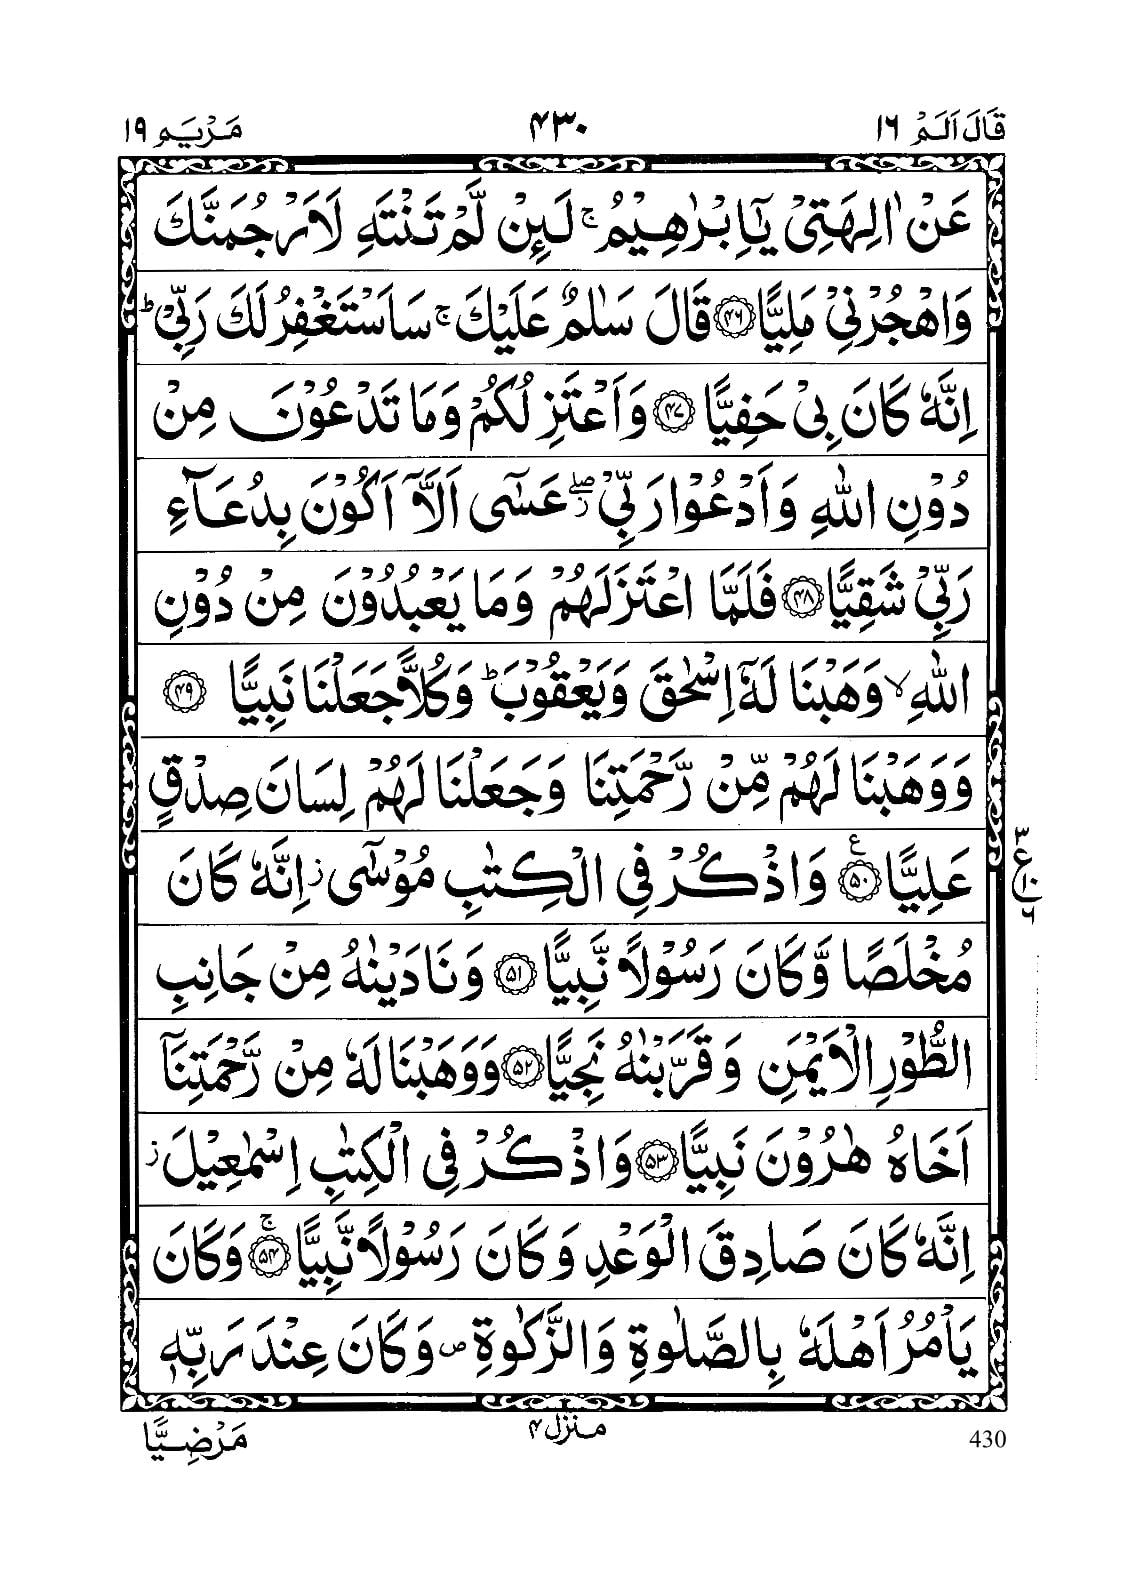 قَالَ اَلَمْ ١٦
۴۳۰
مَرْيَم ١٩
عَنْ اٰلِهَتِيْ يٰۤاِبْرٰهِيْمُ ۚ لَىِٕنْ لَّمْ تَنْتَهِ لَاَرْجُمَنَّكَ
وَاهْجُرْنِيْ مَلِيًّا ﴿۴۶﴾ قَالَ سَلٰمٌ عَلَيْكَ ۚ سَاَسْتَغْفِرُ لَكَ رَبِّيْ ؕ
اِنَّهٗ كَانَ بِيْ حَفِيًّا ﴿۴۷﴾ وَاَعْتَزِلُكُمْ وَمَا تَدْعُوْنَ مِنْ
دُوْنِ اللّٰهِ وَاَدْعُوْا رَبِّيْ ۖؗ عَسٰۤى اَلَّاۤ اَكُوْنَ بِدُعَآءِ
رَبِّيْ شَقِيًّا ﴿۴۸﴾ فَلَمَّا اعْتَزَلَهُمْ وَمَا يَعْبُدُوْنَ مِنْ دُوْنِ
اللّٰهِ ۙ وَهَبْنَا لَهٗۤ اِسْحٰقَ وَيَعْقُوْبَ ؕ وَكُلًّا جَعَلْنَا نَبِيًّا ﴿۴۹﴾
وَوَهَبْنَا لَهُمْ مِّنْ رَّحْمَتِنَا وَجَعَلْنَا لَهُمْ لِسَانَ صِدْقٍ
عَلِيًّا ﴿۵۰﴾ ع وَاذْكُرْ فِي الْكِتٰبِ مُوْسٰۤى ؗ اِنَّهٗ كَانَ
٣ ع ١٠ ٦
مُخْلَصًا وَّكَانَ رَسُوْلًا نَّبِيًّا ﴿۵۱﴾ وَنَادَيْنٰهُ مِنْ جَانِبِ
الطُّوْرِ الْاَيْمَنِ وَقَرَّبْنٰهُ نَجِيًّا ﴿۵۲﴾ وَوَهَبْنَا لَهٗ مِنْ رَّحْمَتِنَاۤ
اَخَاهُ هٰرُوْنَ نَبِيًّا ﴿۵۳﴾ وَاذْكُرْ فِي الْكِتٰبِ اِسْمٰعِيْلَ ؗ
اِنَّهٗ كَانَ صَادِقَ الْوَعْدِ وَكَانَ رَسُوْلًا نَّبِيًّا ۚ ﴿۵۴﴾ وَكَانَ
يَاْمُرُ اَهْلَهٗ بِالصَّلٰوةِ وَالزَّكٰوةِ ۪ وَكَانَ عِنْدَ رَبِّهٖ
مَرْضِيًّا
منزل ۴
430